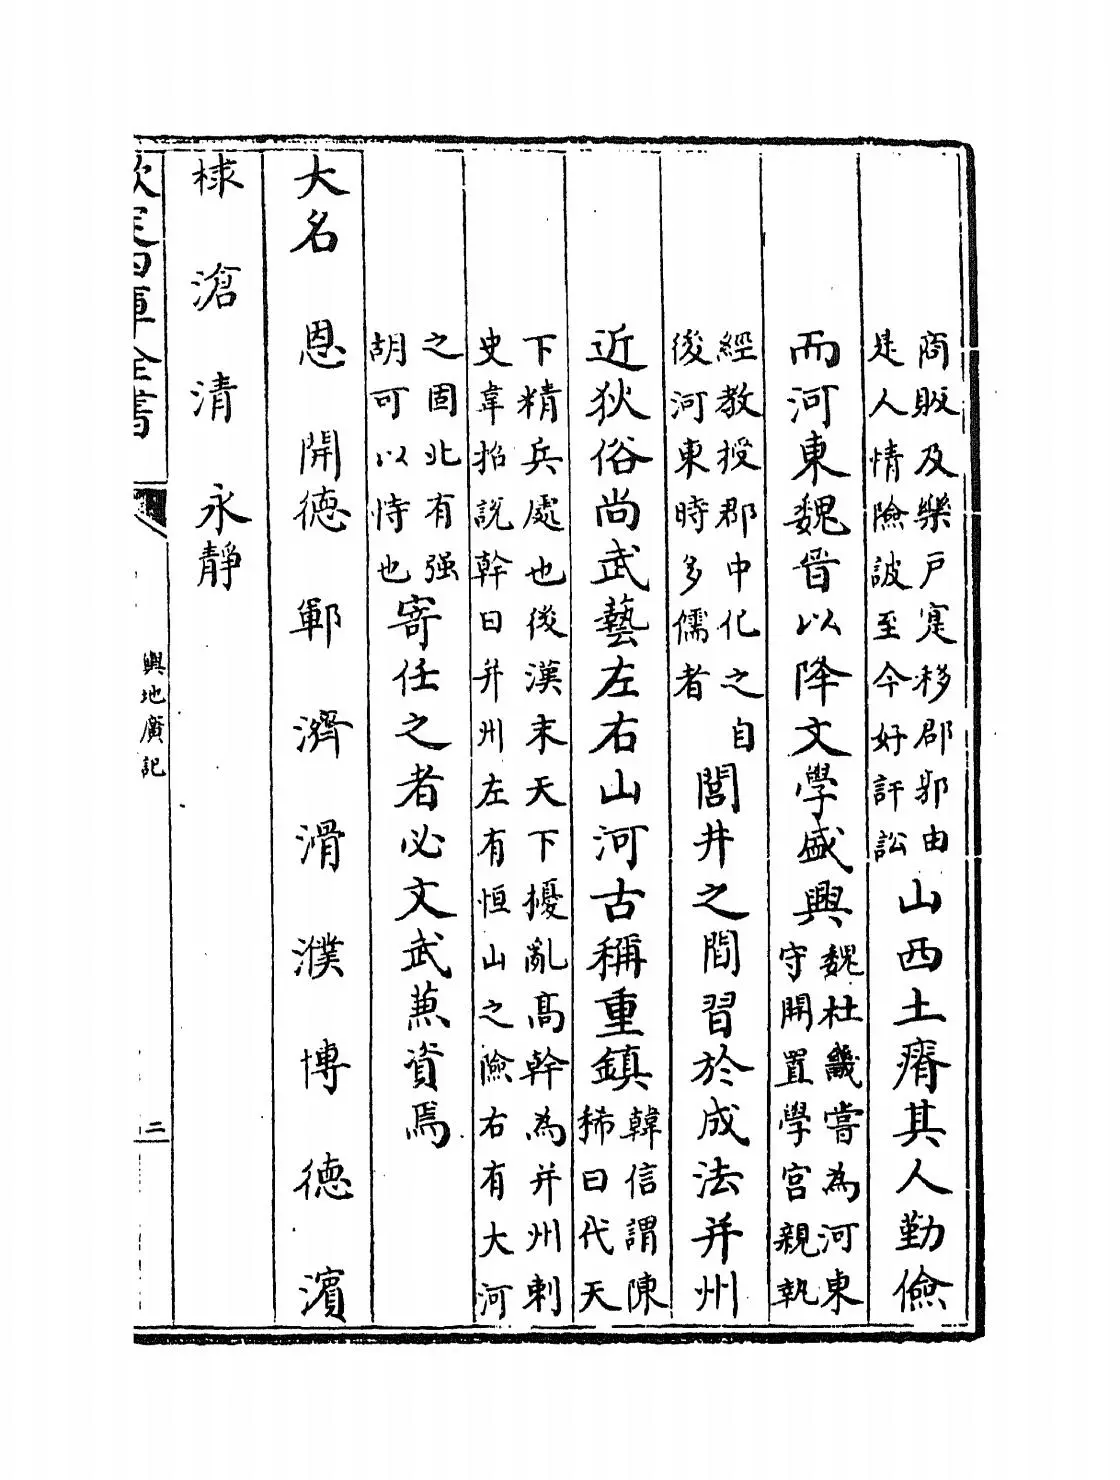 商販及樂戶寔移郡郭由
是人情險詖至今好訐訟
山西土瘠其人勤儉
而河東魏晉以降文學盛興
魏杜畿嘗為河東
守開置學宮親執
經教授郡中化之自
後河東時多儒者
閭井之間習於成法并州
近狄俗尚武藝左右山河古稱重鎮
韓信謂陳
豨曰代天
下精兵處也後漢末天下擾亂高幹為并州刺
史韋招說幹曰并州左有恒山之險右有大河
之固北有强
胡可以恃也
寄任之者必文武兼資焉
大名 恩 開德 鄆 濟 滑 濮 博 德 濱
棣 滄 清 永靜
欽定四庫全書
輿地廣記
二